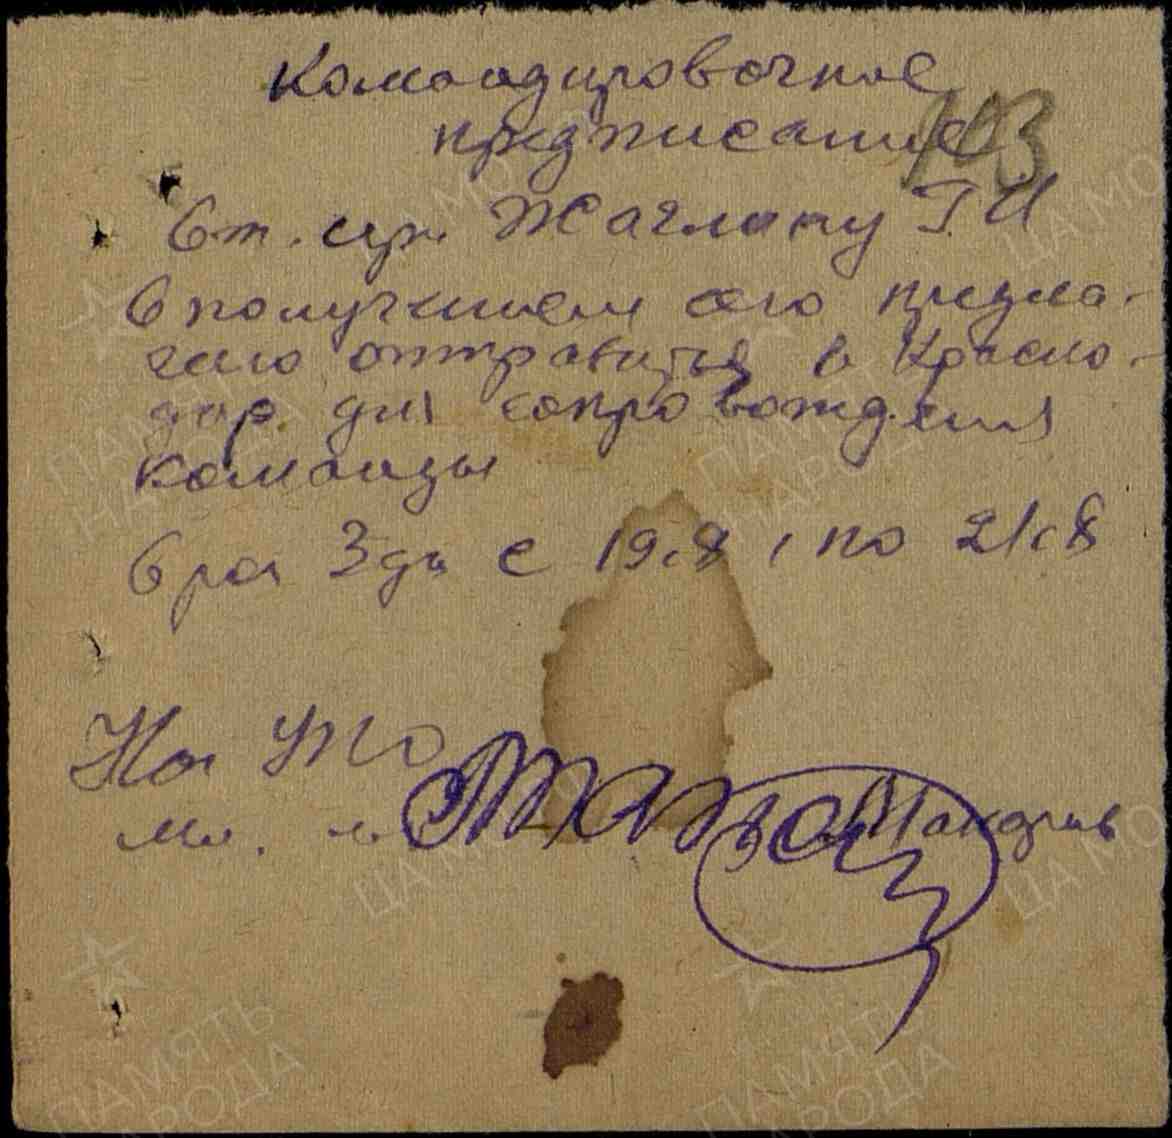 Командировочное
предписание
103
Ст. сер. Жаглину Г И
С получением сего предла-
гаю отправиться в Красно-
дар для сопровождения
команды
Срок 3 дн с 19.8, по 21.8
Нач
мл.
ПАМЯТЬ НАРОДА
ЦА МО